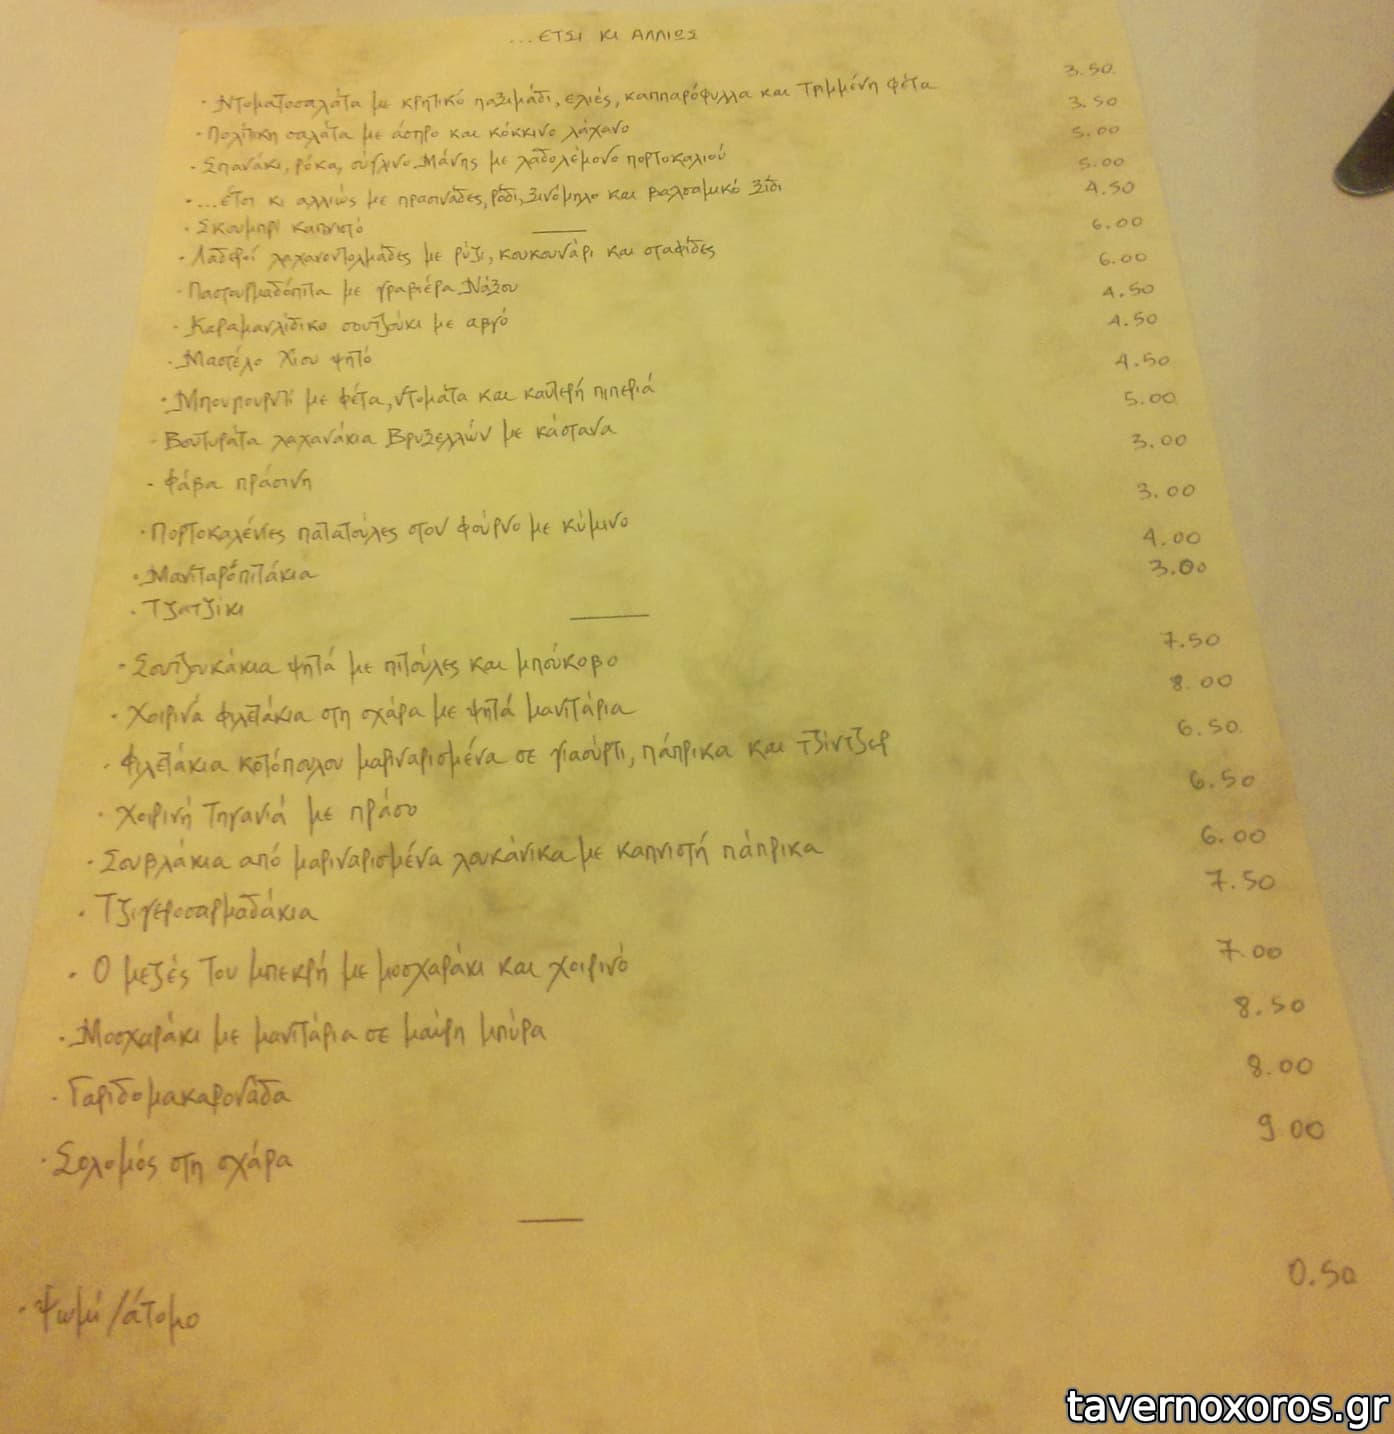 ...ΕΤΣΙ ΚΙ ΑΛΛΙΩΣ
· Ντοματοσαλάτα με κρητικό παξιμάδι, ελιές, καππαρόφυλλα και τριμμένη φέτα 3.50
· Πολίτικη σαλάτα με άσπρο και κόκκινο λάχανο 3.50
· Σπανάκι, ρόκα, σύγλινο Μάνης με λαδολέμονο πορτοκαλιού 5.00
· ...έτσι κι αλλιώς με πρασινάδες, ρόδι, ξινόμηλο και βαλσαμικό ξίδι 5.00
· Σκουμπρί καπνιστό 4.50
· Λαδεροί λαχανοντολμάδες με ρύζι, κουκουνάρι και σταφίδες 6.00
· Παστουρμαδόπιτα με γραβιέρα Νάξου 6.00
· Καραμανλίδικο σουτζούκι με αβγό 4.50
· Μαστέλο Χίου ψητό 4.50
· Μπουγιουρντί με φέτα, ντομάτα και καυτερή πιπεριά 4.50
· Βουτυράτα λαχανάκια Βρυξελλών με κάστανα 5.00
· Φάβα πράσινη 3.00
· Πορτοκαλένιες πατατούλες στον φούρνο με κύμινο 3.00
· Μανιταροπιτάκια 4.00
· Τζατζίκι 3.00
· Σουτζουκάκια ψητά με πιτούλες και μπούκοβο 7.50
· Χοιρινά φιλετάκια στη σχάρα με ψητά μανιτάρια 8.00
· Φιλετάκια κοτόπουλου μαριναρισμένα σε γιαούρτι, πάπρικα και τζίντζερ 6.50
· Χοιρινή τηγανιά με πράσο 6.50
· Σουβλάκια από μαριναρισμένα λουκάνικα με καπνιστή πάπρικα 6.00
· Τζιγεροσαρμαδάκια 7.50
· Ο μεζές του μπεκρή με μοσχαράκι και χοιρινό 7.00
· Μοσχαράκι με μανιτάρια σε μαύρη μπύρα 8.50
· Γαριδομακαρονάδα 8.00
· Σολομός στη σχάρα 9.00
· Ψωμί/άτομο 0.50
tavernoxoros.gr